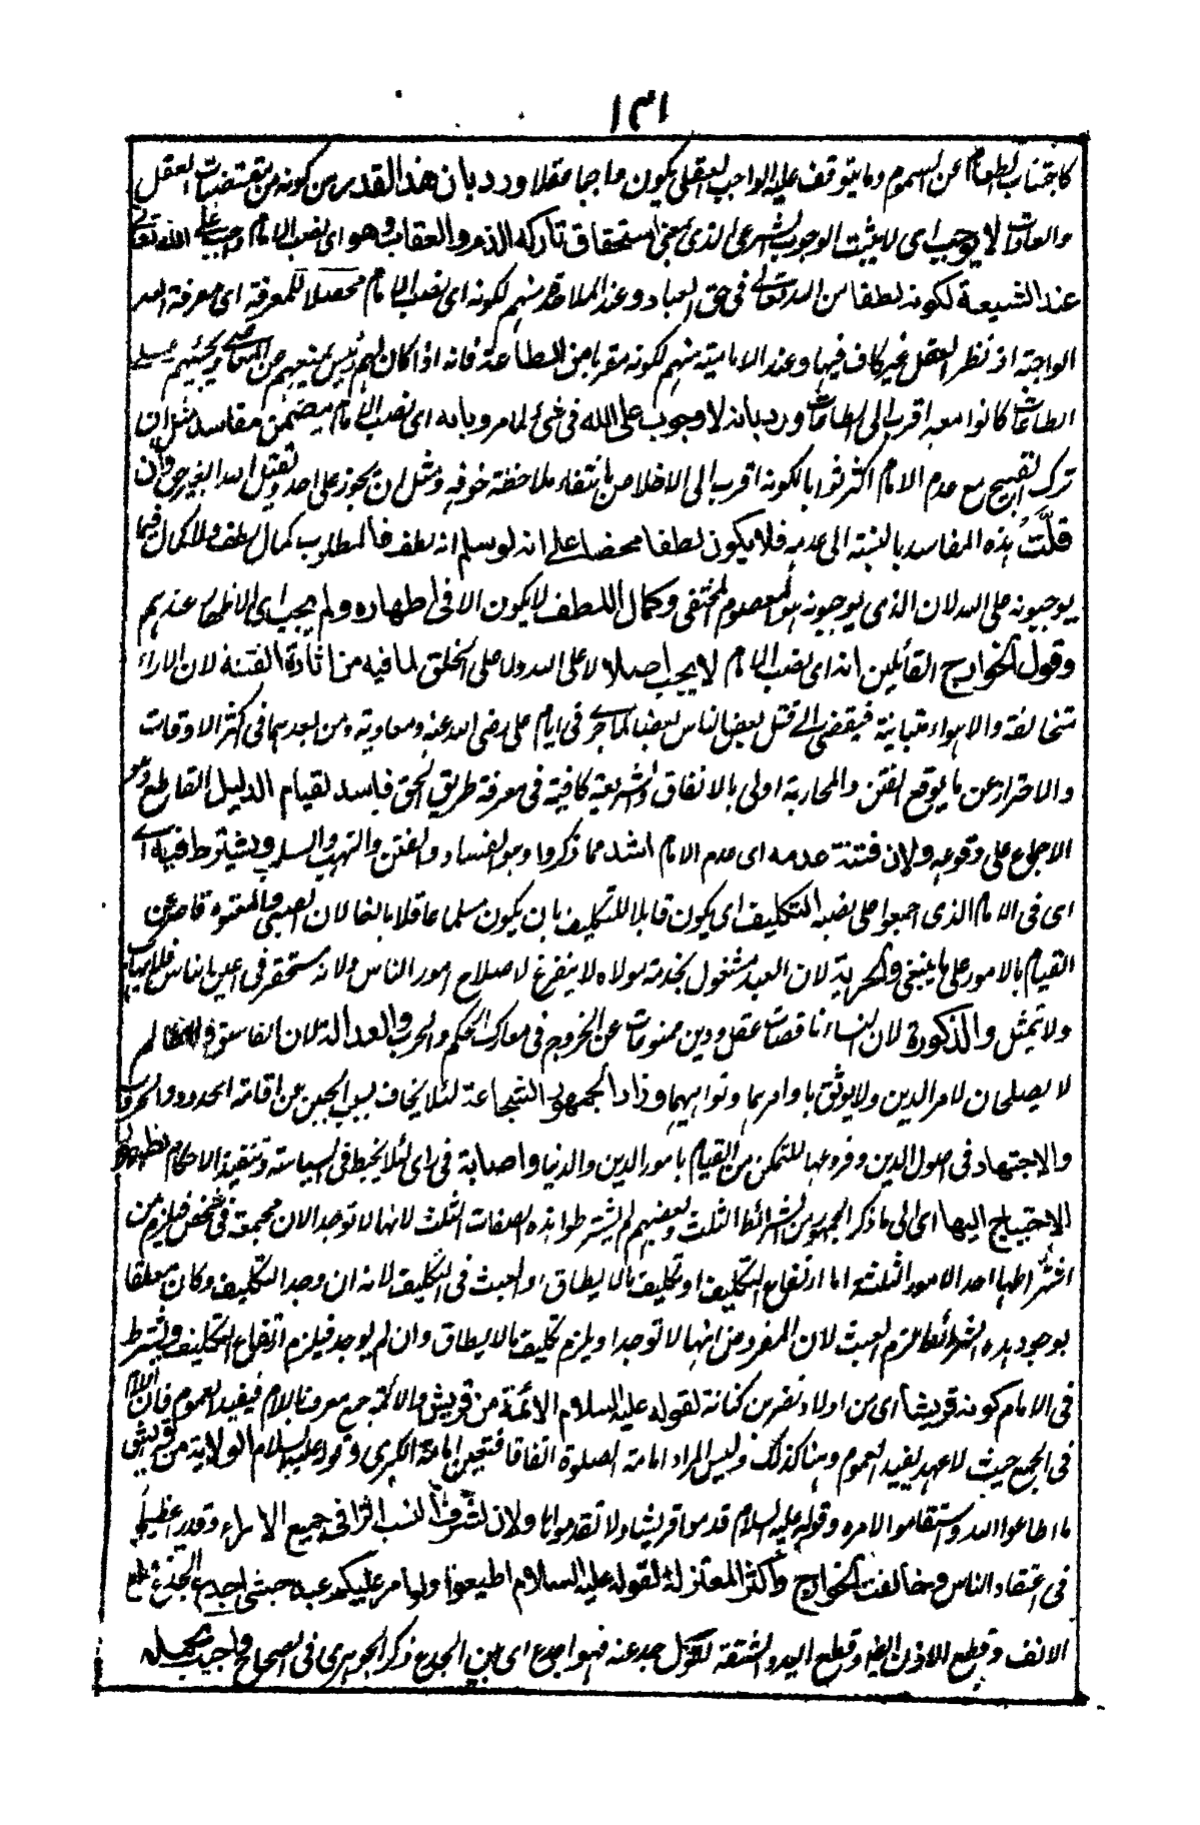 ١٣١
كاجتناب الطعام عن المسموم وما يتوقف عليه الواجب العقلي يكون واجبا عقلا ورد بان هذا القدر من كونه من مقتضيات العقل
والعادات لا يوجب اى لا يثبت الوجوب الشرعى الذى بمعنى استحقاق تاركه الذم والعقاب وهو اى نصب الامام واجب على الله تعالى
عند الشيعة لكونه لطفا من الله تعالى فى حق العباد وعند الملاحدة منهم لكونه اى نصب الامام محصلا للمعرفة اى معرفة الله
الواجبة اذ نظر العقل غير كاف فيها وعند الامامية منهم لكونه مقربا من الطاعة فانه اذا كان لهم رئيس يمنعهم من المعاصى ويحثهم على
الطاعات كانوا معه اقرب الى الطاعات ورد بانه لا وجوب على الله فى شئ لما مر وبانه اى نصب الامام يتضمن مفاسد مثل ان
ترك القبيح مع عدم الامام اكثر ثوابا لكونه اقرب الى الاخلاص بانتفاء ملاحظة خوفه ومثل ان يجوز على احد وتقتل احدا بغير حق وان
قلّت هذه المفاسد بالنسبة الى عدمه فلا يكون لطفا محضا على انه لو سلم انه لطف فالمطلوب كمال اللطف ولا كمال فيما
يوجبونه على الله لان الذى يوجبونه هو المعصوم المختفى وكمال اللطف لا يكون الا فى اظهاره ولم يجب اى الاظهار عندهم
وقول الخوارج القائلين انه اى نصب الامام لا يجب اصلا لا على الله ولا على الخلق لما فيه من اثارة الفتنة لان الاراء
متخالفة والاهواء متباينة فيفضى الى قتل بعض الناس بعضا كما جرى فى ايام على رضى الله عنه ومعاوية ومن بعدهما فى اكثر الاوقات
والاحتراز عن ما يوقع الفتن والمحاربة اولى بالاتفاق والشريعة كافية فى معرفة طريق الحق فاسد لقيام الدليل القاطع وهو
الاجماع على وقوعه ولان فتنة عدمه اى عدم الامام اشد مما ذكروا وهو الفساد والفتن والنهب والسلب ويشترط فيه اى
اى فى الامام الذى اجمعوا على نصبه التكليف اى يكون قابلا للتكليف بان يكون مسلما عاقلا بالغا لان الصبى والمعتوه قاصر عن
القيام بالامور على ما ينبغى والحرية لان العبد مشغول بخدمة مولاه لا يتفرغ لاصلاح امور الناس ولانه مستحقر فى اعين الناس فلا يهاب
ولا تمثل والذكورة لان النساء ناقصات عقل ودين ممنوعات عن الخروج فى معارك الحكم والحرب والعدالة لان الفاسق والظالم
لا يصلحان لامر الدين ولا يوثق باوامرهما ونواهيهما وزاد الجمهور الشجاعة لئلا يخاف بسبب الجبن عن اقامة الحدود والحرب
والاجتهاد فى اصول الدين وفروعها للتمكن من القيام بامور الدين والدنيا واصابة فى راى لئلا يخبط فى السياسة وتنفيذ الاحكام لظهور
الاحتياج اليها اى الى ما ذكر الجمهور من الشرائط الثلث وبعضهم لم يشترطوا هذه الصفات الثلث لانها لا توجد الان مجتمعة فى شخص فيلزم من
اشتراطها احد الامور الثلثة اما ارتفاع التكليف او تكليف ما لا يطاق او العبث فى التكليف لانه ان وجد التكليف وكان معلقا
بوجود هذه الشرائط لزم العبث لان المفروض انها لا توجد او يلزم تكليف ما لا يطاق وان لم يوجد فيلزم ارتفاع التكليف ويشترط
فى الامام كونه قريشا اى من اولاد نضر بن كنانة لقوله عليه السلام الائمة من قريش والائمة جمع معرف باللام فيفيد العموم فان اللام
فى الجمع حيث لا عهد يفيد العموم وهنا كذلك وليس المراد امامة الصلوة اتفاقا فتعين امامة الكبرى وقوله عليه السلام الولاية من قريش
ما اطاعوا الله واستقاموا لامره وقوله عليه السلام قدموا قريشا ولا تقدموها ولان لشرف النسب اثرا فى جميع الاراء وقدرا عظيما
فى اعتقاد الناس وخالفت الخوارج واكثر المعتزلة لقوله عليه السلام اطيعوا ولو امر عليكم عبد حبشى اجدع الجدع قطع
الانف وقطع الاذن ايضا وقطع اليد والشفة تقول جدعته فهو اجدع اى بين الجدع ذكر الجوهرى فى الصحاح واجيب بحمله